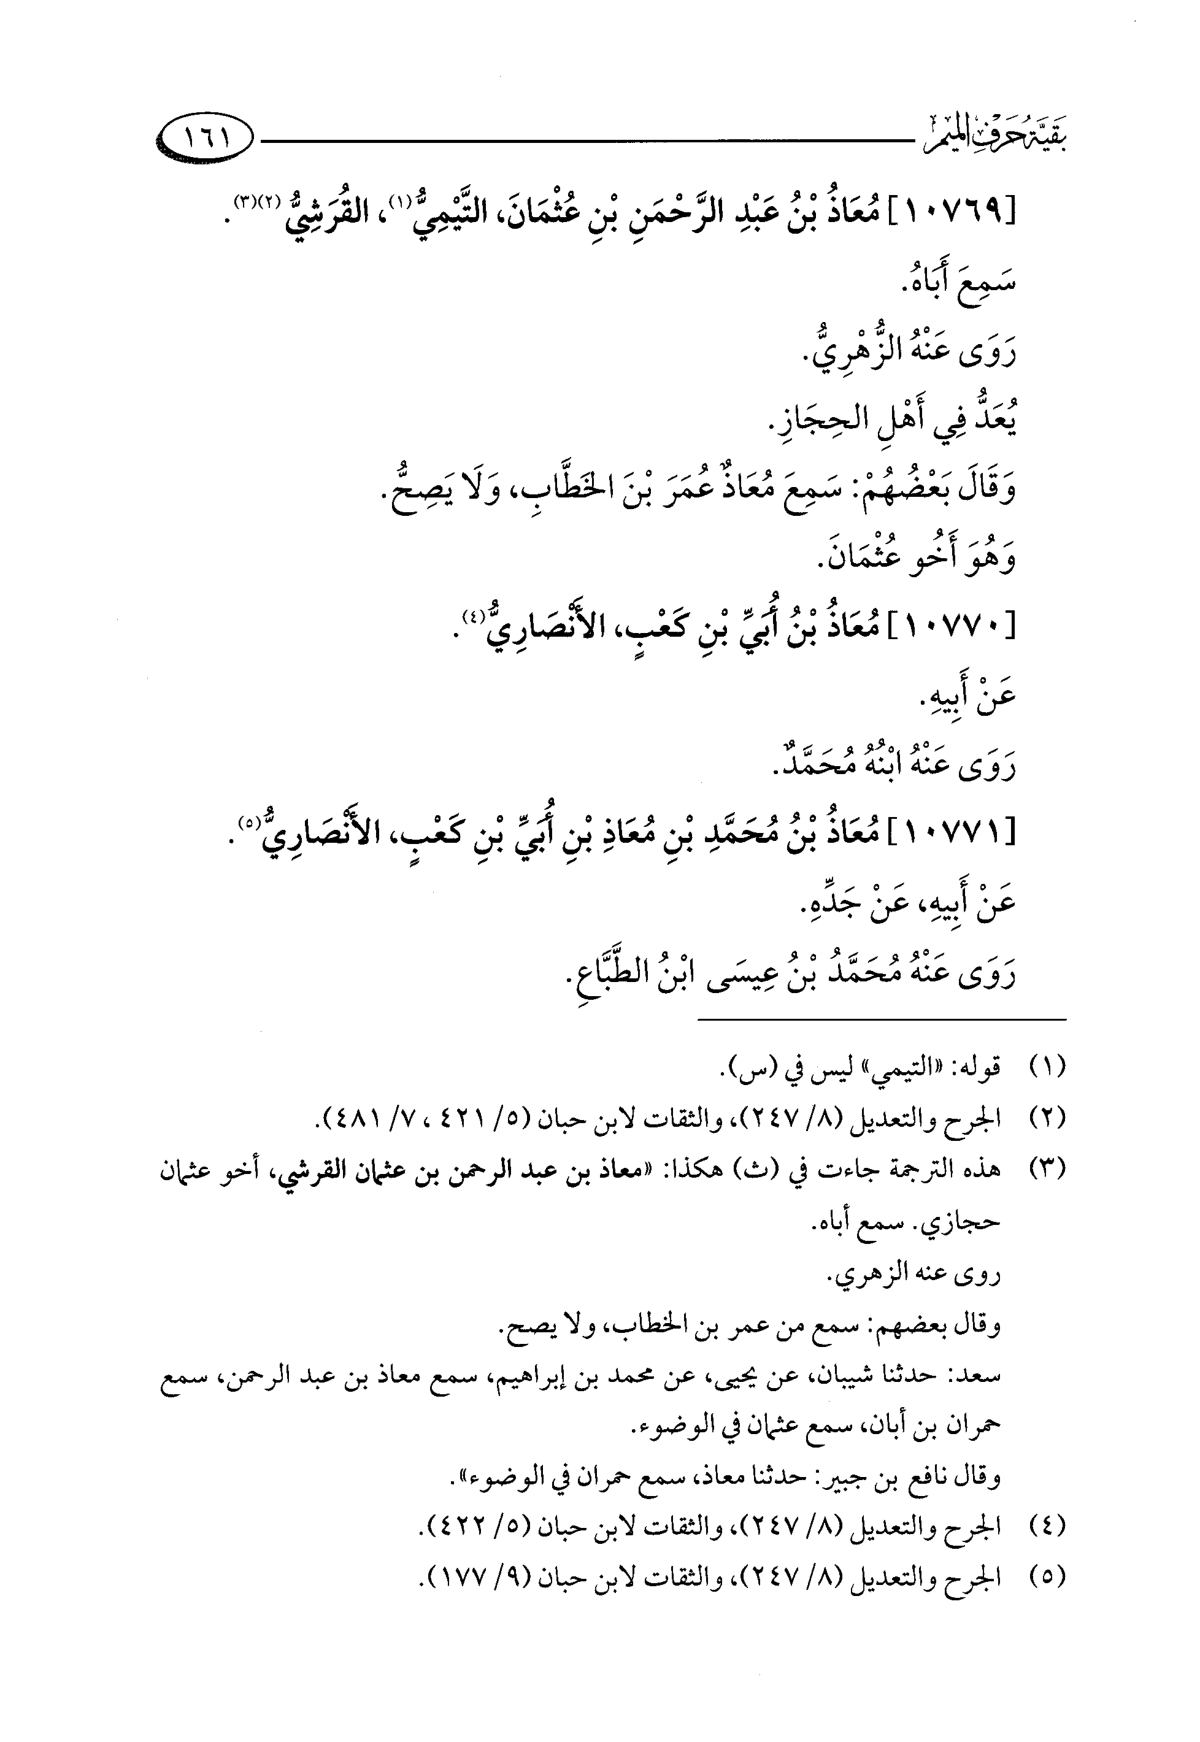 بَقِيَّةُ حَرْفِ المِيمِ
١٦١
[١٠٧٦٩] مُعَاذُ بْنُ عَبْدِ الرَّحْمَنِ بْنِ عُثْمَانَ، التَّيْمِيُّ(١)، القُرَشِيُّ(٢)(٣).
سَمِعَ أَبَاهُ.
رَوَى عَنْهُ الزُّهْرِيُّ.
يُعَدُّ فِي أَهْلِ الحِجَازِ.
وَقَالَ بَعْضُهُمْ: سَمِعَ مُعَاذٌ عُمَرَ بْنَ الخَطَّابِ، وَلَا يَصِحُّ.
وَهُوَ أَخُو عُثْمَانَ.
[١٠٧٧٠] مُعَاذُ بْنُ أُبَيِّ بْنِ كَعْبٍ، الأَنْصَارِيُّ(٤).
عَنْ أَبِيهِ.
رَوَى عَنْهُ ابْنُهُ مُحَمَّدٌ.
[١٠٧٧١] مُعَاذُ بْنُ مُحَمَّدِ بْنِ مُعَاذِ بْنِ أُبَيِّ بْنِ كَعْبٍ، الأَنْصَارِيُّ(٥).
عَنْ أَبِيهِ، عَنْ جَدِّهِ.
رَوَى عَنْهُ مُحَمَّدُ بْنُ عِيسَى ابْنُ الطَّبَّاعِ.
(١) قوله: «التيمي» ليس في (س).
(٢) الجرح والتعديل (٨/ ٢٤٧)، والثقات لابن حبان (٥/ ٤٢١، ٧/ ٤٨١).
(٣) هذه الترجمة جاءت في (ث) هكذا: «معاذ بن عبد الرحمن بن عثمان القرشي، أخو عثمان
حجازي. سمع أباه.
روى عنه الزهري.
وقال بعضهم: سمع من عمر بن الخطاب، ولا يصح.
سعد: حدثنا شيبان، عن يحيى، عن محمد بن إبراهيم، سمع معاذ بن عبد الرحمن، سمع
حمران بن أبان، سمع عثمان في الوضوء.
وقال نافع بن جبير: حدثنا معاذ، سمع حمران في الوضوء».
(٤) الجرح والتعديل (٨/ ٢٤٧)، والثقات لابن حبان (٥/ ٤٢٢).
(٥) الجرح والتعديل (٨/ ٢٤٧)، والثقات لابن حبان (٩/ ١٧٧).